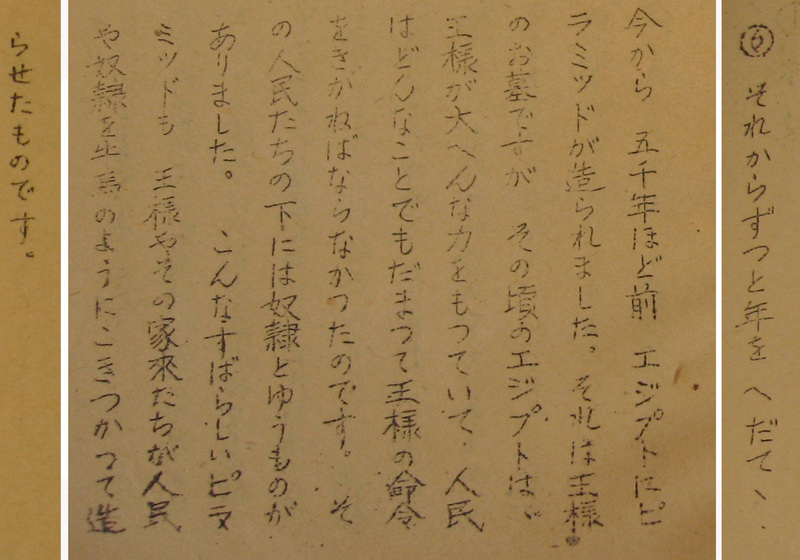 ⑥ それからずつと年を へだてヽ
今から 五千年ほど前 エジプトにピ
ラミッドが造られました。それは王様
のお墓ですが その頃のエジプトは、
王様が大へんな力をもつていて、人民
はどんなことでもだまつて王様の命令
をきかねばならなかつたのです。 そ
の人民たちの下には奴隷とゆうものが
ありました。 こんなすばらしいピラ
ミッドも 王様やその家來たちが人民
や奴隷を牛馬のようにこきつかつて造
らせたものです。